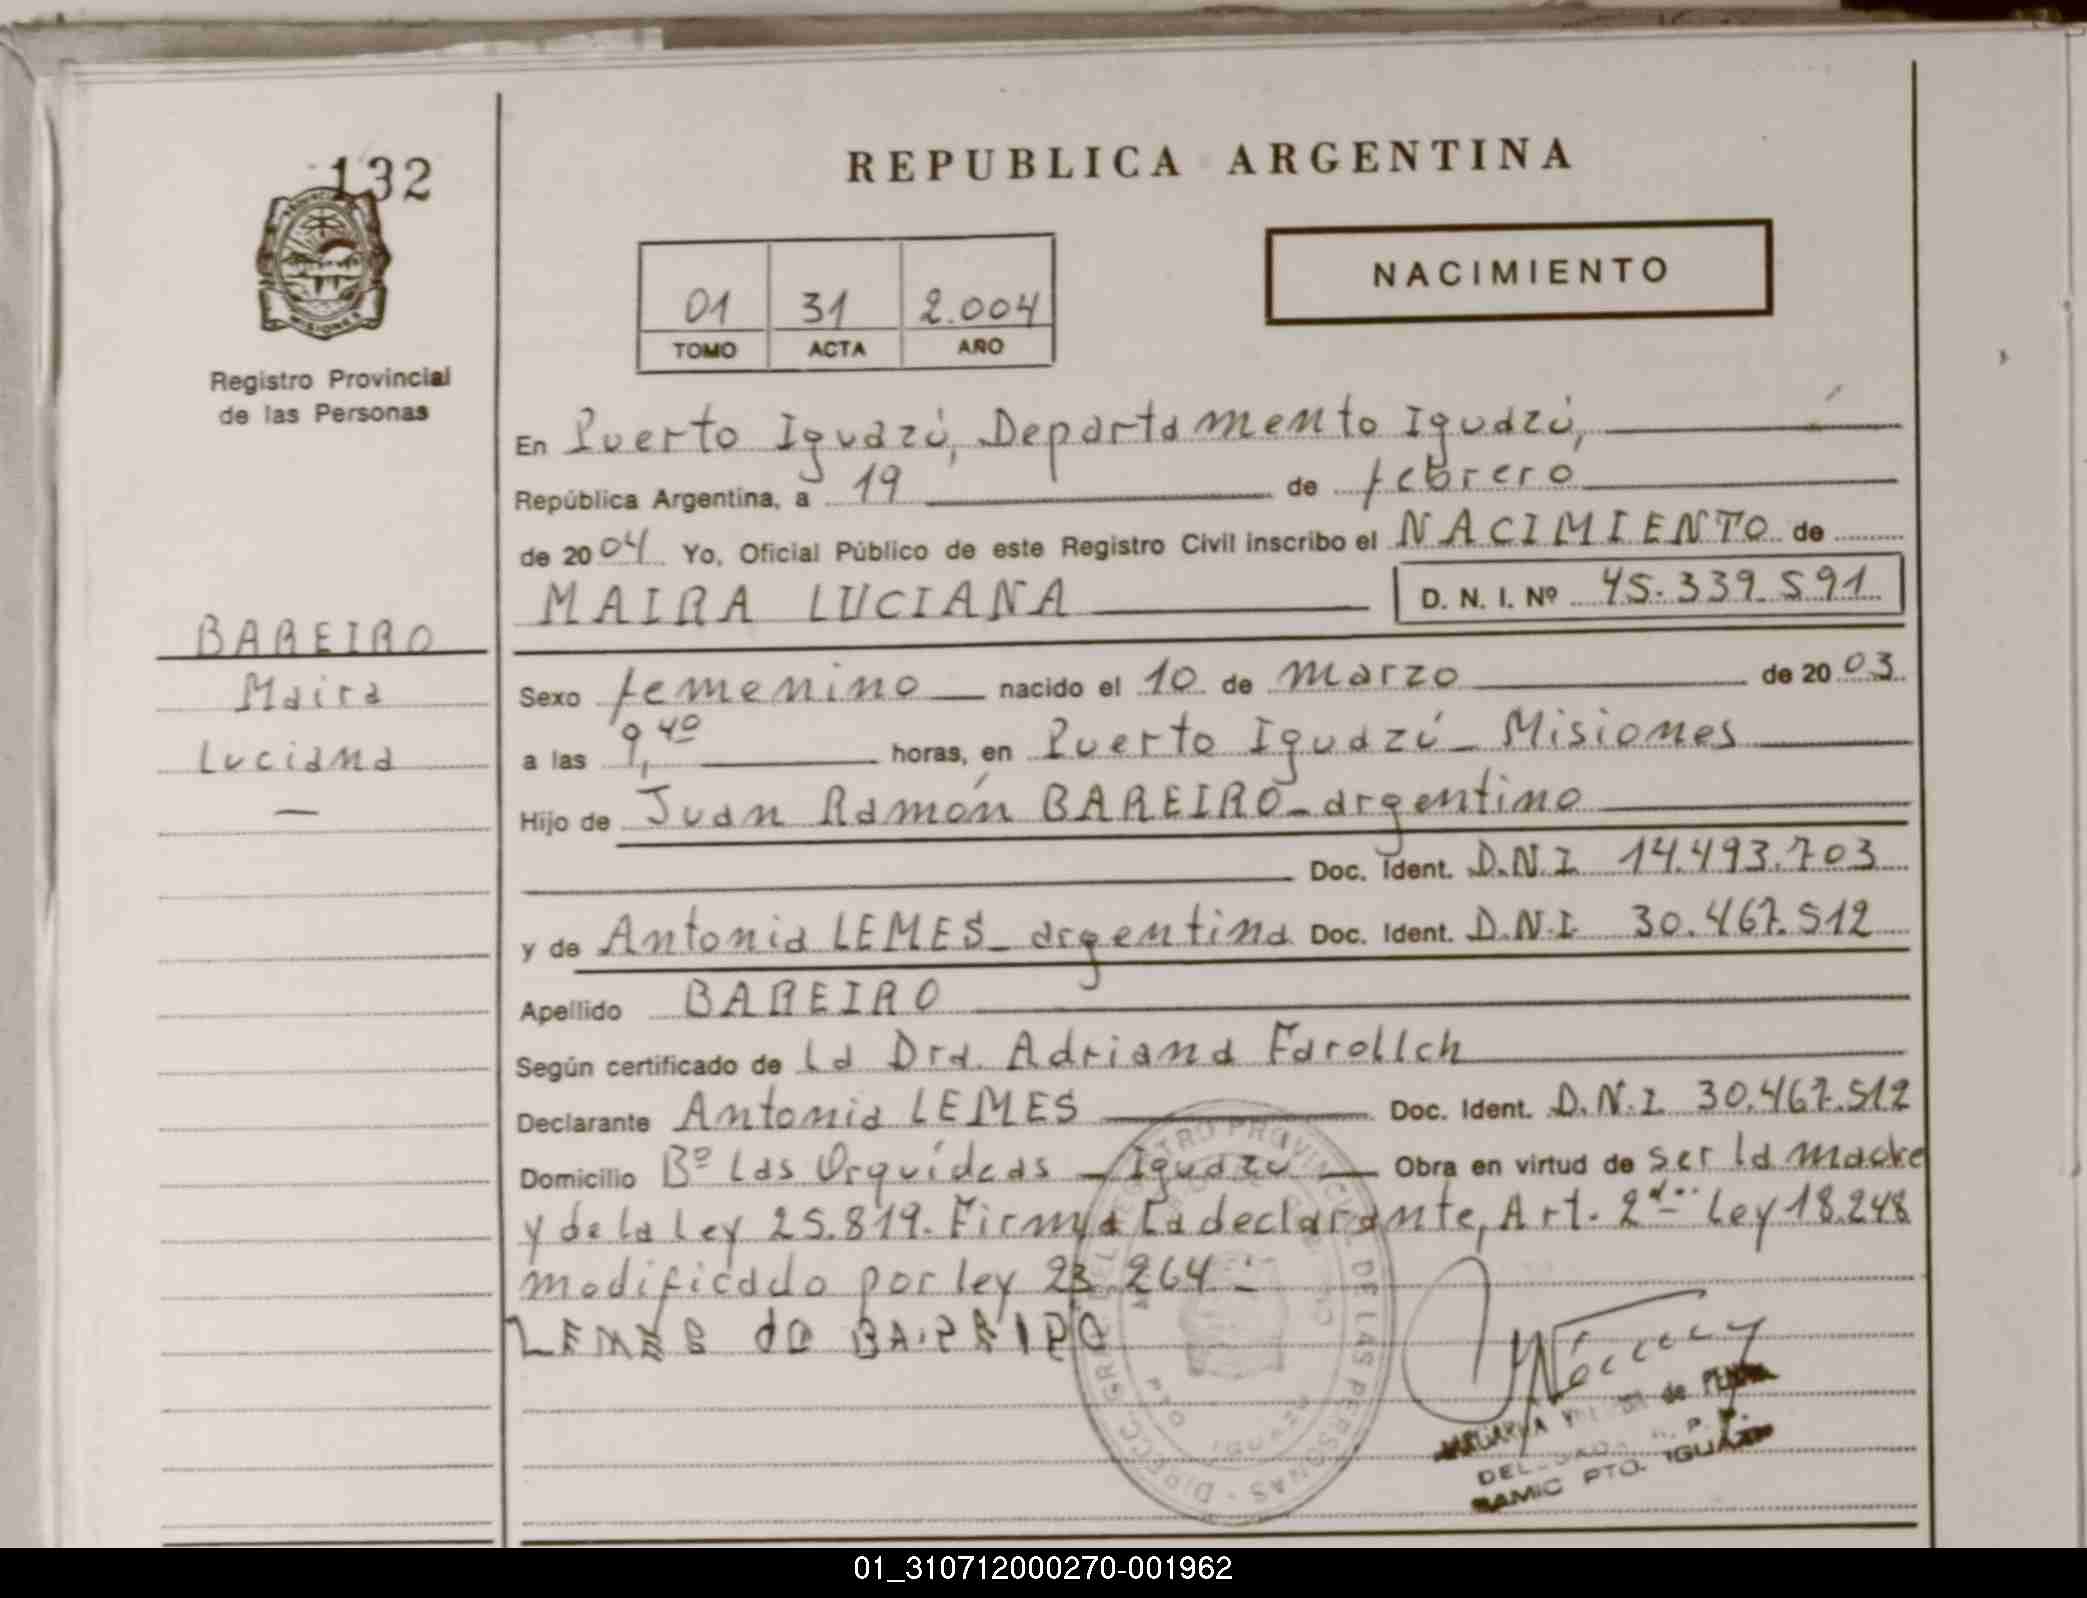 132
REPUBLICA ARGENTINA
NACIMIENTO
01 31 2.004
TOMO ACTA AÑO
Registro Provincial
de las Personas
En Puerto Iguazú, Departamento Iguazú,
República Argentina, a 19 de febrero
de 2004 Yo, Oficial Público de este Registro Civil inscribo el NACIMIENTO de
MAIRA LUCIANA D. N. I. Nº 45.339.591
BAREIRO
Maira
Luciana
Sexo femenino nacido el 10 de marzo de 2003
a las 9,40 horas, en Puerto Iguazú - Misiones
Hijo de Juan Ramón BAREIRO - argentino
Doc. Ident. D.N.I 14.493.703
y de Antonia LEMES - argentina Doc. Ident. D.N.I. 30.467.512
Apellido BAREIRO
Según certificado de La Dra. Adriana Farollch
Declarante Antonia LEMES Doc. Ident. D.N.I 30.467.512
Domicilio Bº Las Orquídeas - Iguazu - Obra en virtud de ser la madre
y de la Ley 25.819. Firma la declarante, Art. 2do Ley 18.248
modificado por ley 23.264.-
LEMES de BAREIRO
DIRECC. GRAL. DEL REGISTRO PROVINCIAL DE LAS PERSONAS
PTO IGUAZU
de
R. P. P.
SAMIC PTO. IGUAZU
01_310712000270-001962